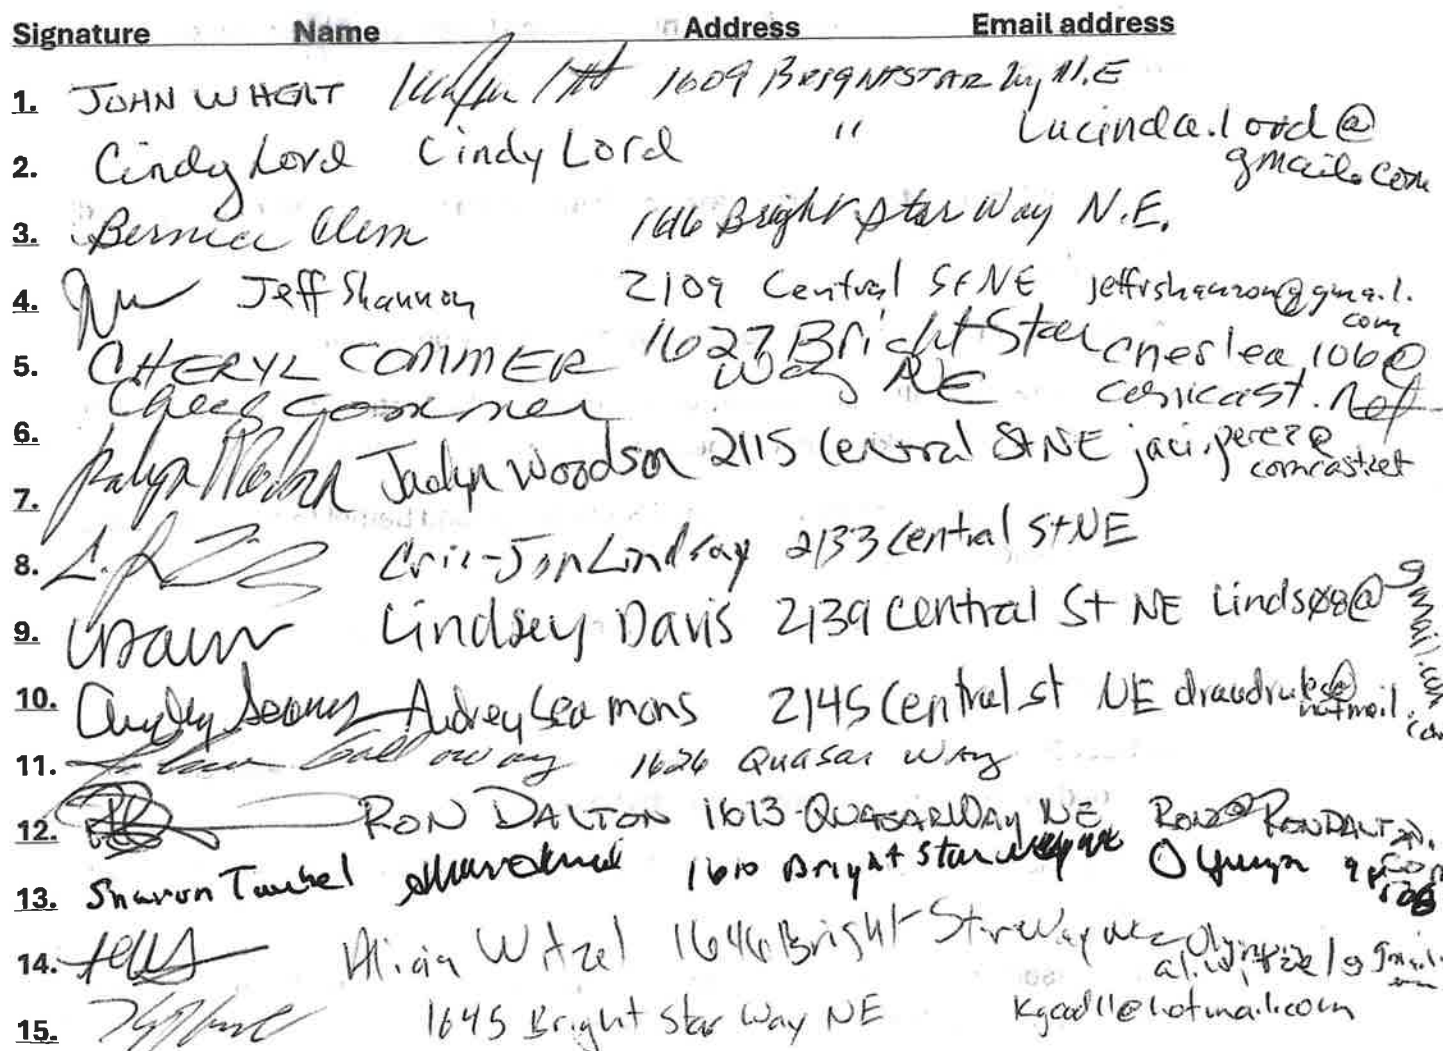 Signature Name Address Email address
1. JOHN WHEAT 1609 BRIGHTSTAR Wy N.E
2. Cindy Lord Cindy Lord " Lucinda.lord@
gmail.com
3. Bernice Clem 1616 Bright Star Way N.E.
4. Jeff Shannon 2109 Central St NE jeffrshannon@gmail.
com
5. CHERYL COMMER 1627 Bright Star cherlea106@
Way NE comcast.net
6. Cheryl Commer
7. Jaclyn Woodson 2115 Central St NE jaci.perez@
comcast.net
8. Lindsay 2133 Central St NE
9. Lindsey Davis 2139 Central St NE Linds08@gmail.com
10. Audrey Seamons 2145 Central St NE
hotmail.com
11. Galloway 1626 Quasar Way
12. RON DALTON 1613 QUASAR Way NE Ron@RONDALTON.
com
13. Sharon 1610 Bright Star Way NE Olympia
14. Alicia Witzel 1646 Bright Star Way NE Olympia
gmail.
15. 1645 Bright Star Way NE Kgood11@hotmail.com